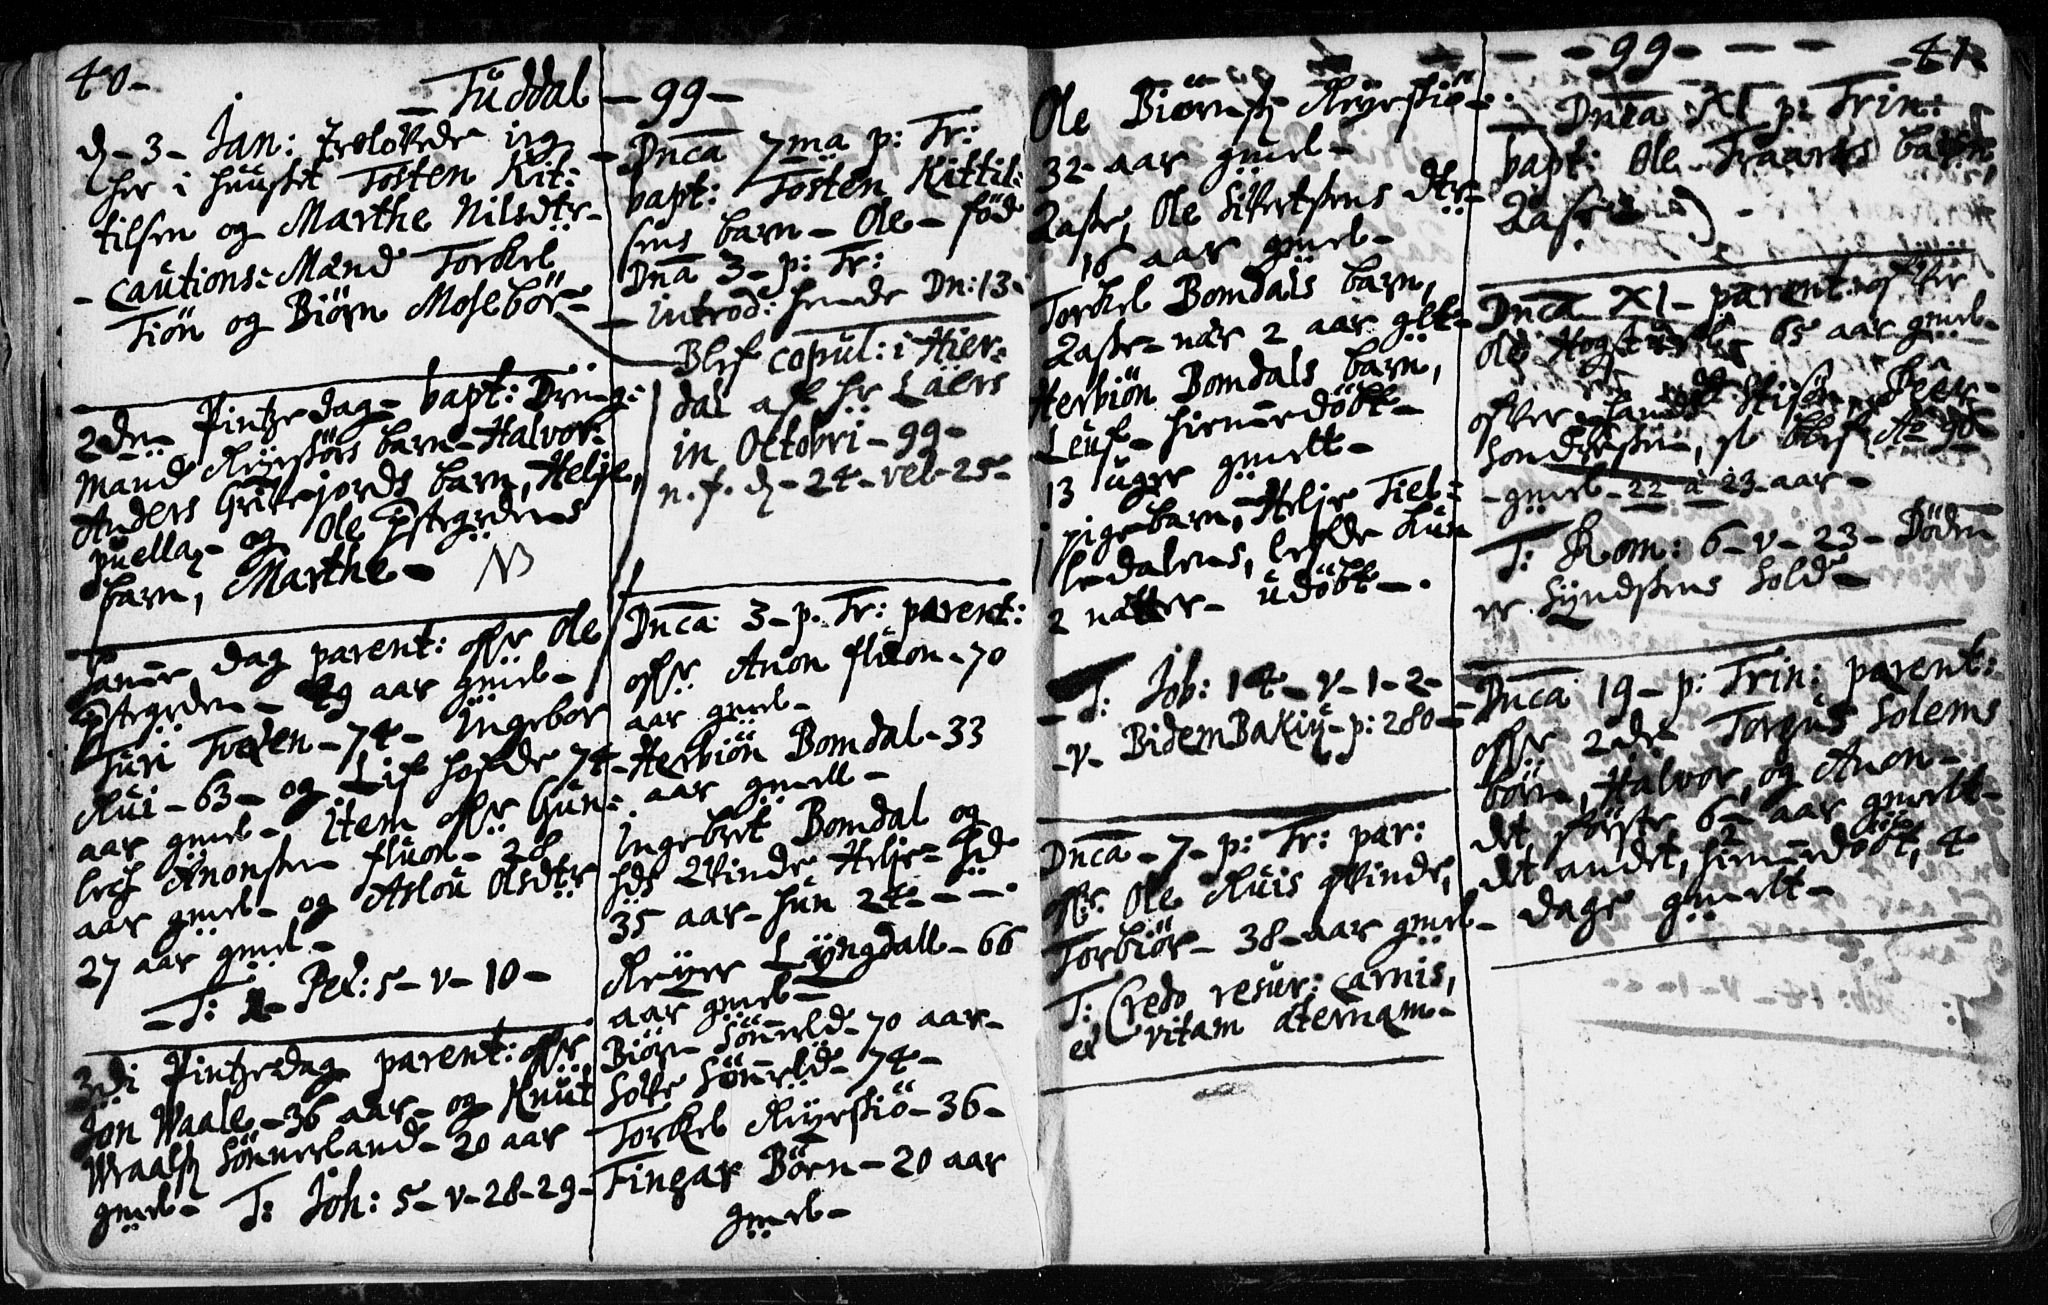 40-
Tüddal - 99 -
d - 3 - Jan: trolovede ieg
her i huuset Tosten Kit:
tilsen og Marthe Nilsdtr-
- Cautions-Mænd Torkel
Tiön og Biörn Mosebör-
2den Pintzedag - bapt: Dreng:
Mand Rüyesiös barn - Halvor:
Anders Grivejords barn, Helje,
puella - og Ole Pstegrdens
barn, Marthe - NB
Samme dag parent: offr Ole
Pstegrden - 29 aar gmel -
Turi Tveden - 74 - Ingebor
Rui - 63 - og Lif hofde 74 -
aar gmel - , item offr Gun:
lech Anonsen fluon - 28
aar gmel - og Aslou Olsdtr
27 aar gmel -
- T: 1 - Pet: 5 - v - 10 -
3di Pintzedag parent: offr
Jon Waale - 36 aar - og Knut
Wraals Sönnerland - 20 aar
gmel - T: Joh: 5 - v - 28 - 29 -
Dnca 7ma p: Tr:
bapt: Tosten Kittil:
sens barn - Ole - föd
Dna 3 - p: Tr:
- introd: hende Dn: 13 -
Blef copul: i Hier:
dal aff hr Laers
in Octobri - 99 -
n. f. d - 24 - vel 25 -
Dnca 3 - p. Tr: parent:
offr Anon fluon - 70
aar gmel -
Herbiön Bomdal - 33
aar gmell -
Ingebret Bomdal og
hds Qvinde Helje - hd
35 aar - hun 24 - - -
Reyer Lÿngdall - 66
aar gmel -
Biörn Sönrld - 70 aar -
Solve Sönrld - 74 -
Torkel Rüyesiö - 36 -
Tingar Börn - 20 aar
gmel -
Ole Biörns Rüyesiö -
32 - aar gmel -
Aasse, Ole Sivertsens dtr -
16 aar gmel -
Torkel Bomdals barn,
Aasse - nær 2 aar glt -
Herbiön Bomdals barn,
Leuf - hiemmedöbt -
13 uger gmelt -
j pigebarn, Helje Tiel:
ledalens, lefde kun
2 nætter - udöbt - .
- T: Job: 14 - v - 1 - 2 -
- v - BidemBakiÿ - p: 280 -
Dnca - 7 - p: Tr: par:
offr Ole Ruis qvinde,
Torbiör - 38 - aar gmel -
T: Credo resur: carnis,
et vitam æternam -
- - 99 - - - 41
Dnca XI p: Trin:
bapt: Ole Traands barn,
Aasse
Dnca XI - parent: ofver
65 aar gmel -
ofver
Sondresen, st blef Ao 90
- gmel - 22 a 23 aar -
T: Rom: 6 - v - 23 - Döden
er Sÿndsens Sold -
Dnca 19 - p: Trin: parent:
offr 2de Torgus Solems
börn, Halvor, og Anon -
det förste 6 - aar gmelt -
det andet, hiemmedöbt, 4
dage gmelt -